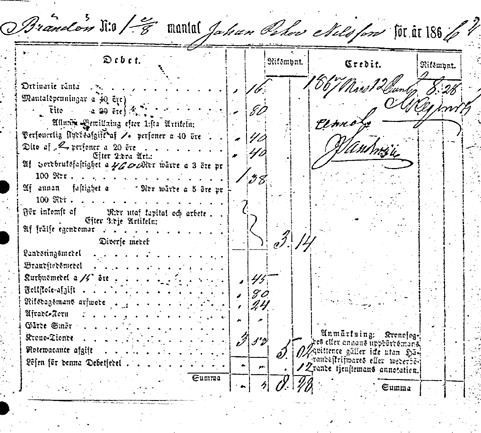 Brändön N:o 1 5/8 mantal Johan Petter Nilsson för år 186
Debet. Riksmynt. Credit. Riksmynt.
Ordinarie ränta 16 1867 Mars 12 8 28
Mantalspenningar a 40 öre
Dito a 20 öre 80
Allmän Bevillning efter 1:sta Artikeln:
Personerlig Skyddsafgift af 1 personer a 40 öre 40
Dito af 2 personer a 20 öre 40
Efter 2:dra Art:
Af Jordbruksfastighet a 4600 Rdr wärde a 3 öre pr
100 Rdr 1 38
Af annan fastighet a Rdr wärde a 5 öre pr
100 Rdr
För inkomst af Rdr utaf kapital och arbete
Efter 3:dje Artikeln:
Af frälse egendomar 3 14
Diverse medel
Landstingsmedel
Brandstodsmedel
Kurhusmedel a 15 öre 45
Folkskole-afgift 80
Riksdagsmans arfwode 24
Afrads-Torn
Gärde Smör
Krono-Tionde 3 53
Notewarande afgift 5 02
Lösen för denna Debetsedel 12
Summa 8 28
Anmärkning: Kronofog-
des eller annans uppbördsmans
qwittence gäller icke utan Hä-
radsskrifwares eller wederbö-
rande tjenstemans annotation.
Summa